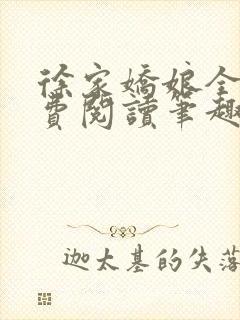 徐家嬌娘全
費閱讀筆趣
迦太基的失落